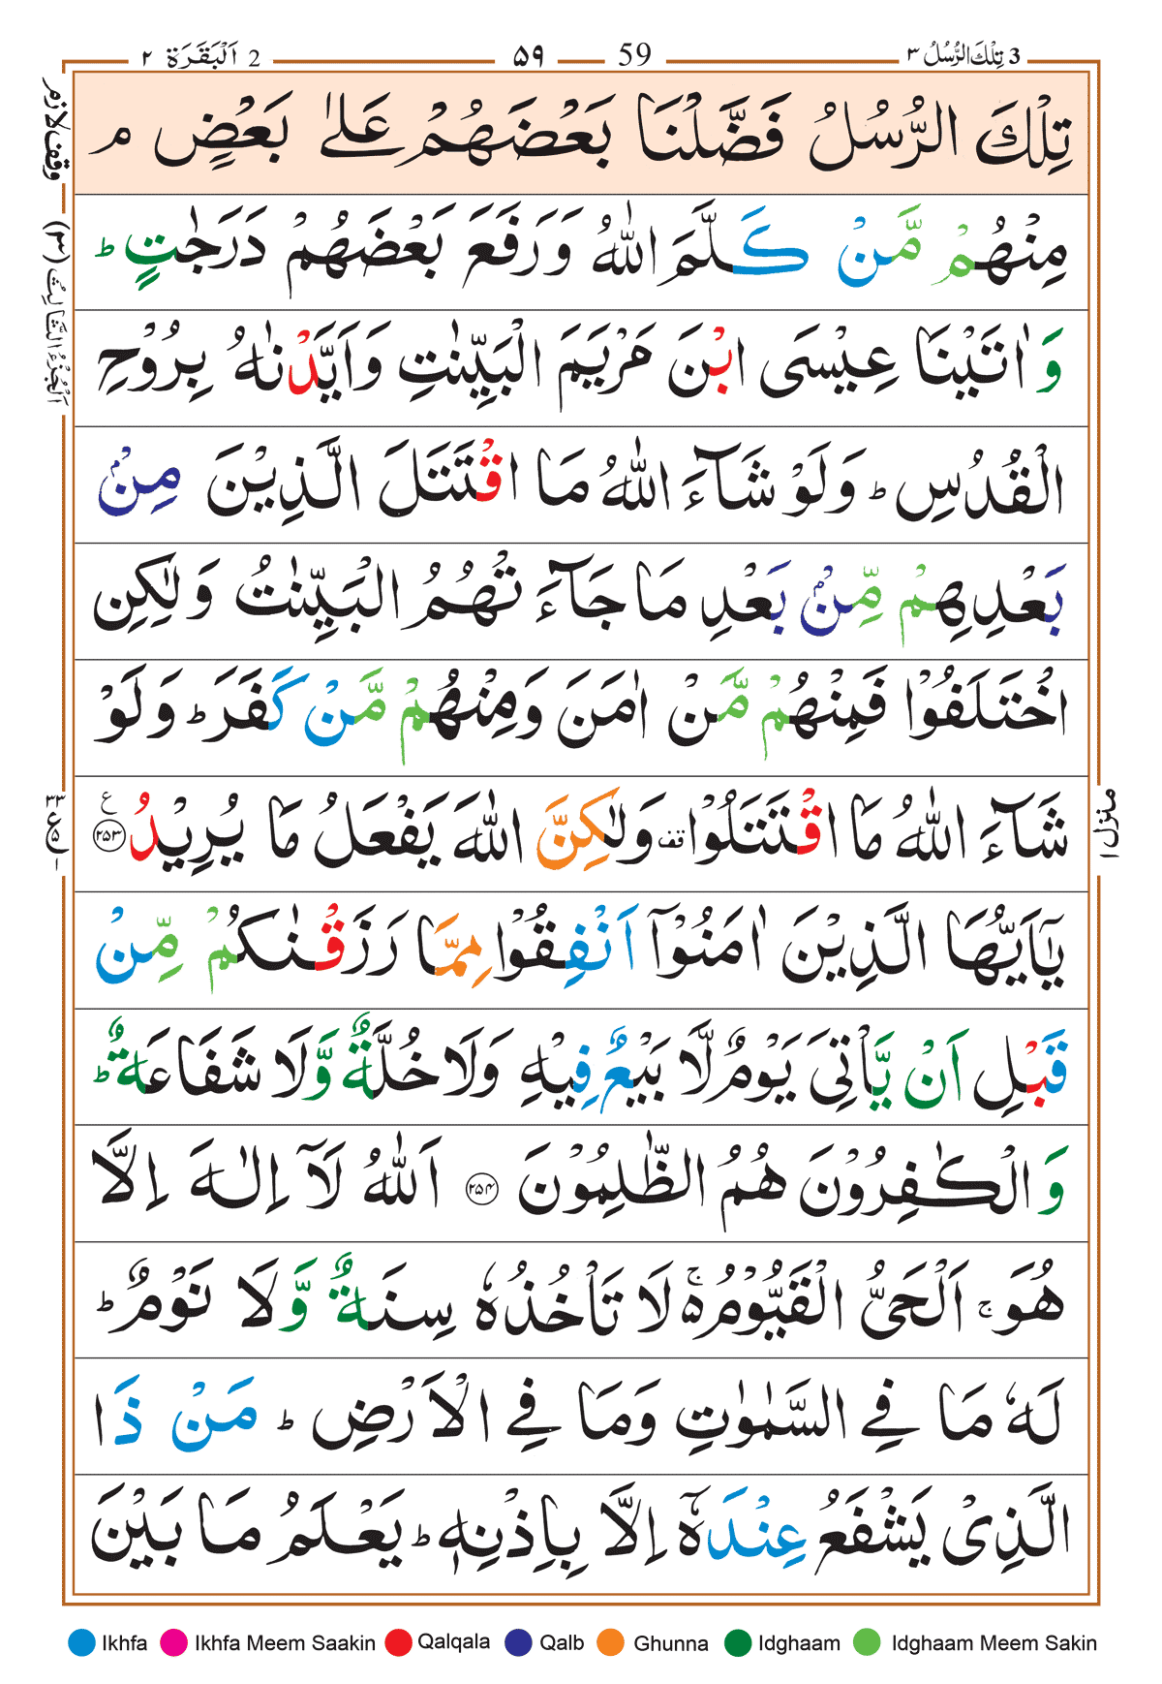 3 تِلْكَ الرُّسُلُ ٣ 59 ۵۹ 2 اَلْبَقَرَة ٢
تِلْكَ الرُّسُلُ فَضَّلْنَا بَعْضَهُمْ عَلٰی بَعْضٍ ۘ
وقف لازم
مِنْهُمْ مَّنْ كَلَّمَ اللّٰهُ وَرَفَعَ بَعْضَهُمْ دَرَجٰتٍ ؕ
اَلْجُزْءُ الثَّالِثُ (٣)
وَ اٰتَیْنَا عِیْسَی ابْنَ مَرْیَمَ الْبَیِّنٰتِ وَ اَیَّدْنٰهُ بِرُوْحِ
الْقُدُسِ ؕ وَ لَوْ شَآءَ اللّٰهُ مَا اقْتَتَلَ الَّذِیْنَ مِنْۢ
بَعْدِهِمْ مِّنْۢ بَعْدِ مَا جَآءَ تْهُمُ الْبَیِّنٰتُ وَ لٰكِنِ
اخْتَلَفُوْا فَمِنْهُمْ مَّنْ اٰمَنَ وَ مِنْهُمْ مَّنْ كَفَرَ ؕ وَ لَوْ
شَآءَ اللّٰهُ مَا اقْتَتَلُوْا قف وَ لٰكِنَّ اللّٰهَ یَفْعَلُ مَا یُرِیْدُ ﴿۲۵۳﴾ ع
منزل ١
یٰۤاَیُّهَا الَّذِیْنَ اٰمَنُوْۤا اَنْفِقُوْا مِمَّا رَزَقْنٰكُمْ مِّنْ
قَبْلِ اَنْ یَّاْتِیَ یَوْمٌ لَّا بَیْعٌ فِیْهِ وَ لَا خُلَّةٌ وَّ لَا شَفَاعَةٌ ؕ
وَ الْكٰفِرُوْنَ هُمُ الظّٰلِمُوْنَ ﴿۲۵۴﴾ اَللّٰهُ لَاۤ اِلٰهَ اِلَّا
هُوَ ۚ اَلْحَیُّ الْقَیُّوْمُ ۵ۚ لَا تَاْخُذُهٗ سِنَةٌ وَّ لَا نَوْمٌ ؕ
لَهٗ مَا فِی السَّمٰوٰتِ وَ مَا فِی الْاَرْضِ ؕ مَنْ ذَا
الَّذِیْ یَشْفَعُ عِنْدَهٗۤ اِلَّا بِاِذْنِهٖ ؕ یَعْلَمُ مَا بَیْنَ
Ikhfa Ikhfa Meem Saakin Qalqala Qalb Ghunna Idghaam Idghaam Meem Sakin